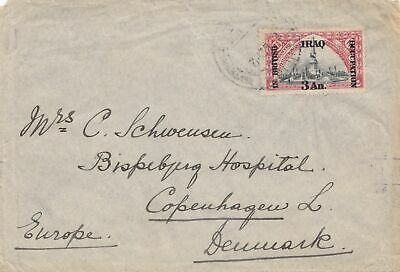 IRAQ
IN BRITISH
OCCUPATION
3 An.
Mrs C. Schwensen.
Bispebjerg Hospital.
Copenhagen L.
Europe.
Denmark.